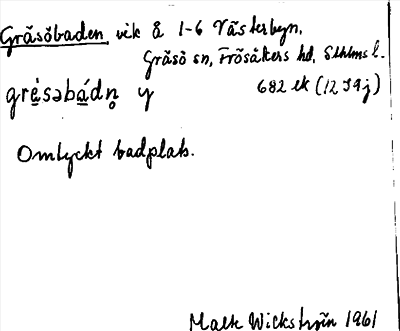 Gräsöbaden, vik å 1-6 Västerbyn,
Gräsö sn, Frösåkers hd, Sthlms l.
gre̱´səba̱´dn̥ y 682 ek (12 I 9j)
Omtyckt badplats.
Wickström 1961